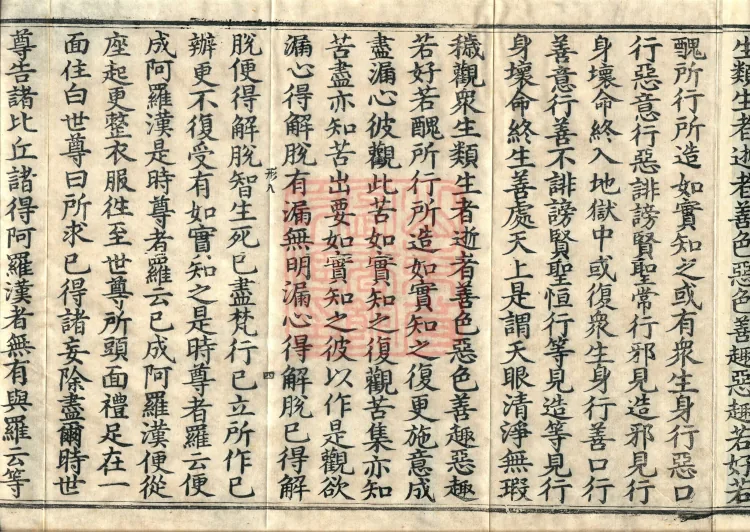 生類生者逝者善色惡色善趣惡趣若好若
醜所行所造如實知之或有眾生身行惡口
行惡意行惡誹謗賢聖常行邪見造邪見行
身壞命終入地獄中或復眾生身行善口行
善意行善不誹謗賢聖恒行等見造等見行
身壞命終生善處天上是謂天眼清淨無瑕
穢觀眾生類生者逝者善色惡色善趣惡趣
若好若醜所行所造如實知之復更施意成
盡漏心彼觀此苦如實知之復觀苦集亦知
苦盡亦知苦出要如實知之彼以作是觀欲
漏心得解脫有漏無明漏心得解脫已得解
形九
四
脫便得解脫智生死已盡梵行已立所作已
辦更不復受有如實知之是時尊者羅云便
成阿羅漢是時尊者羅云已成阿羅漢便從
座起更整衣服往至世尊所頭面禮足在一
面住白世尊曰所求已得諸妄除盡爾時世
尊告諸比丘諸得阿羅漢者無有與羅云等